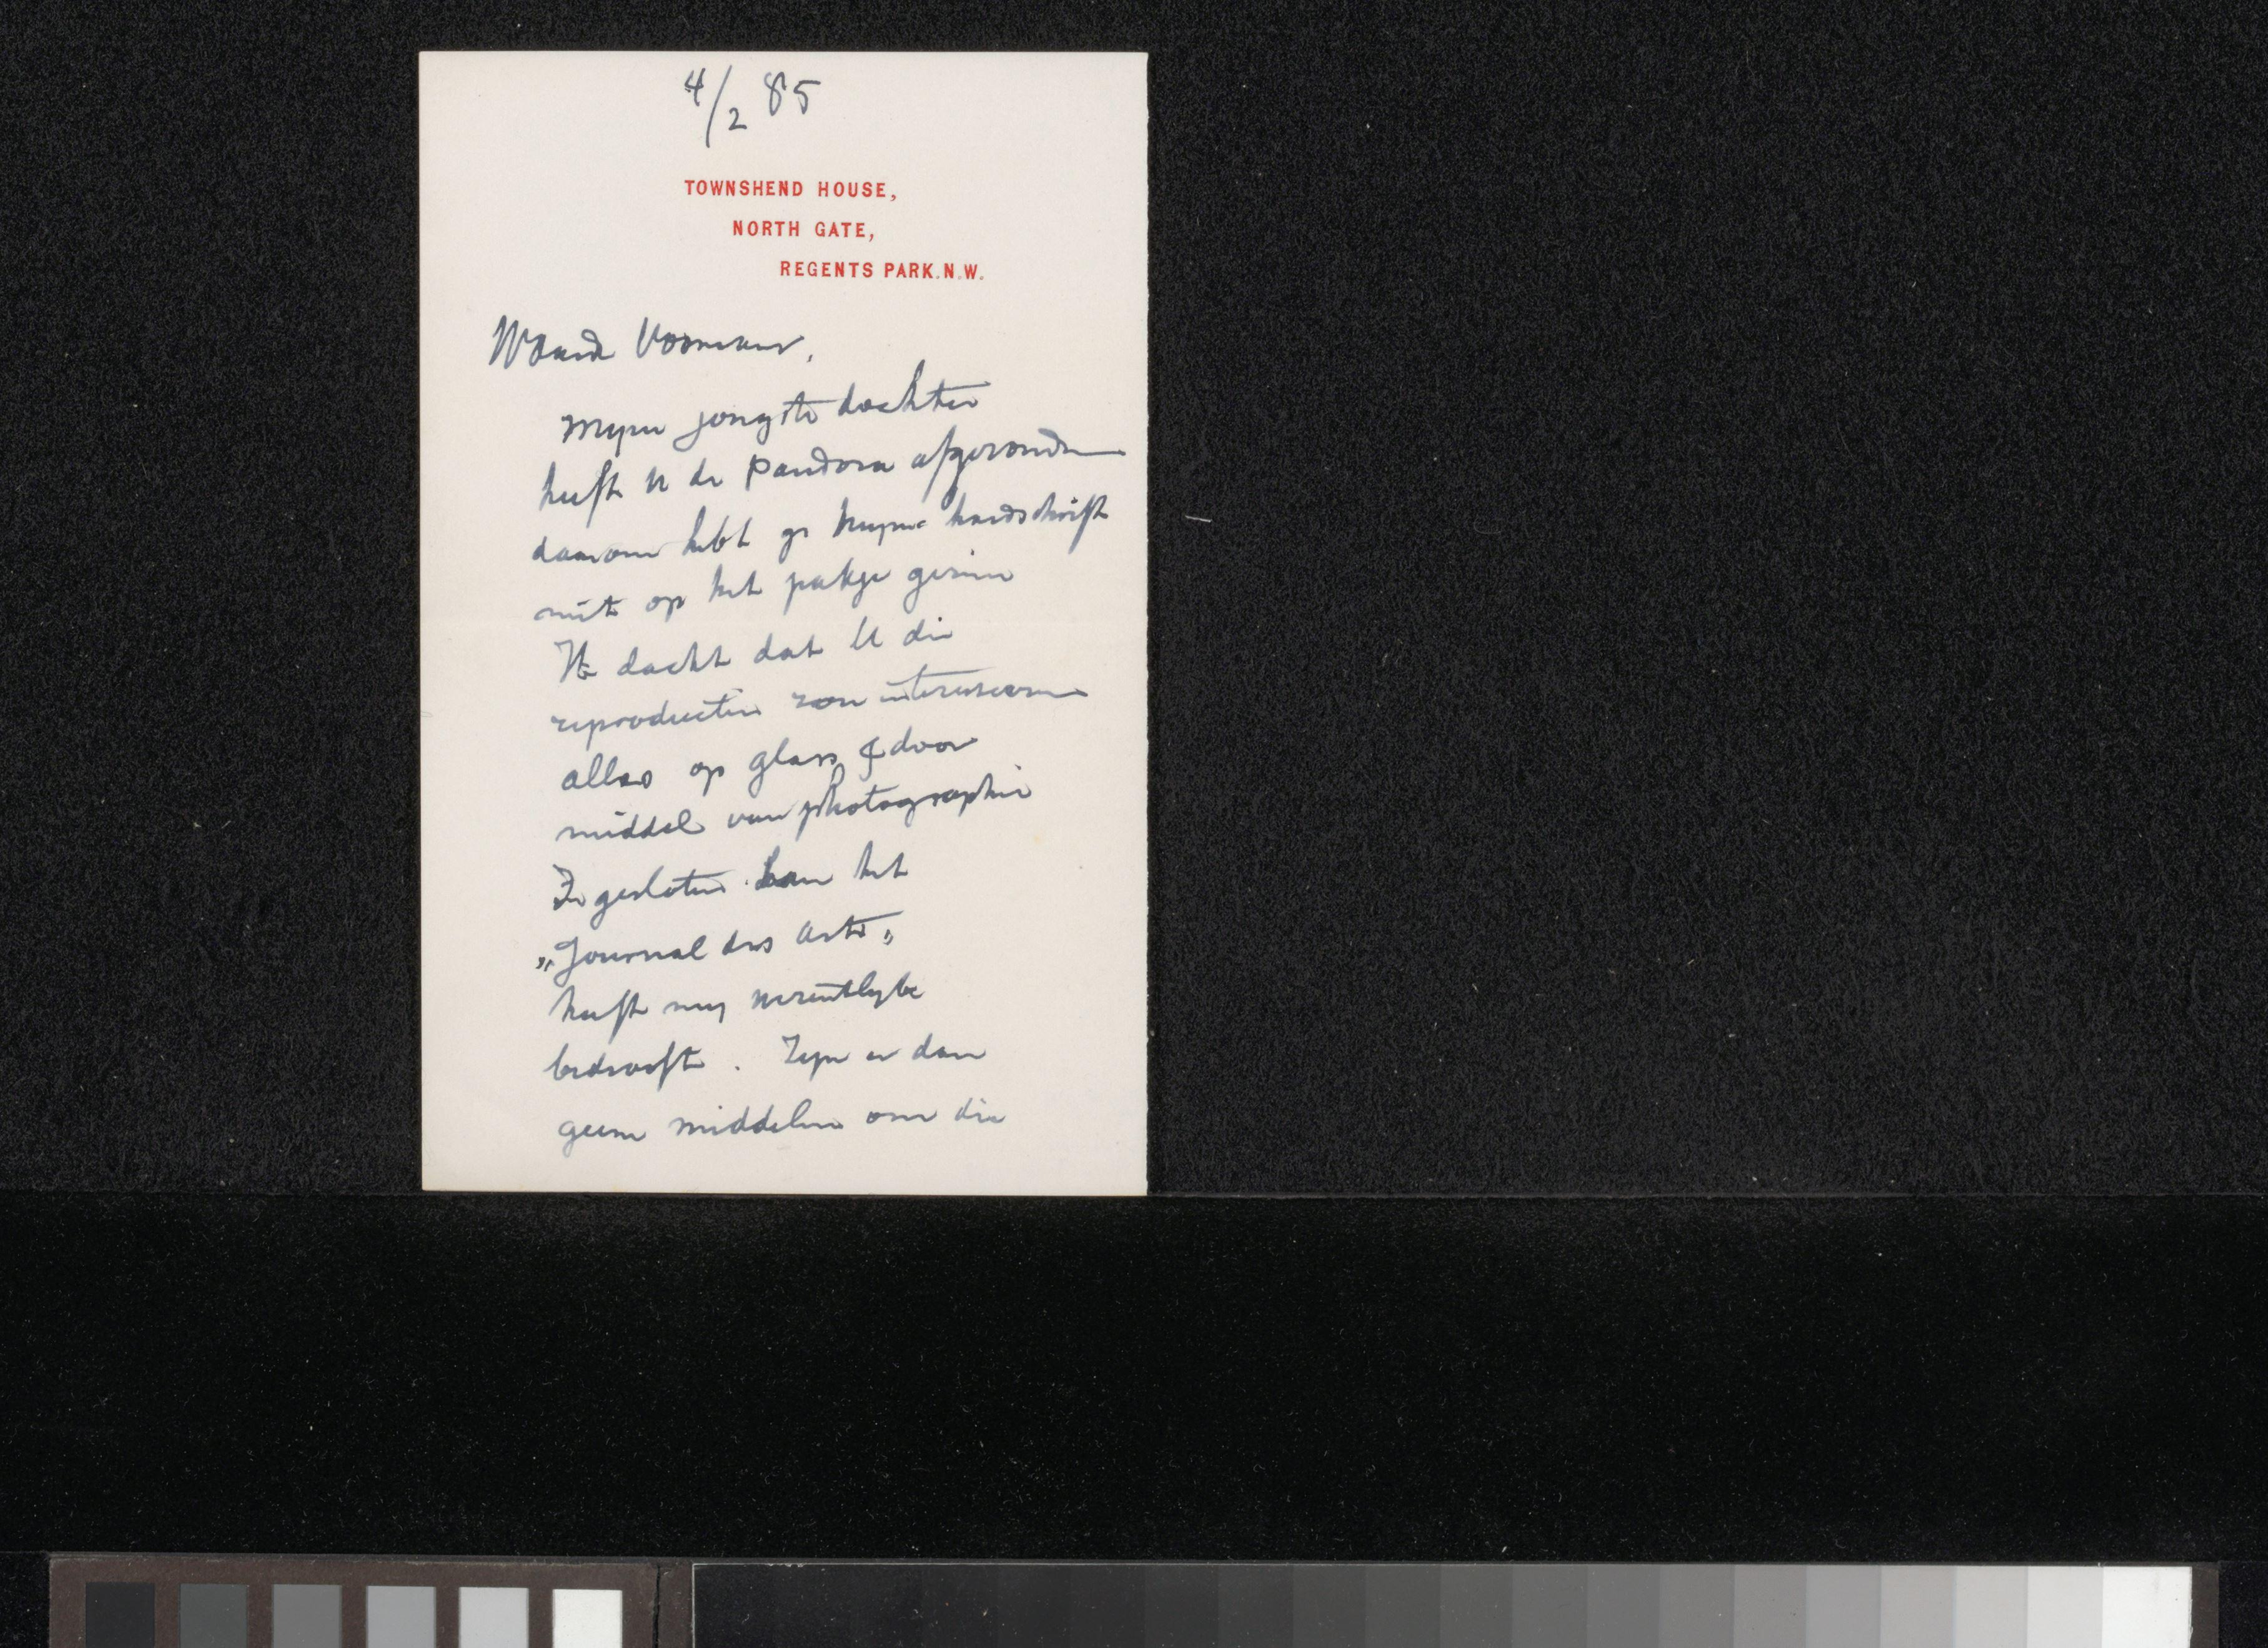 4/2 85
TOWNSHEND HOUSE,
NORTH GATE,
REGENTS PARK.N.W.
Waarde Vosmaer,
Myne jongste dochter
heeft U de Pandora afgezonden
daarom hebt ge myne handschrift
niet op het pakje gezien
Ik dacht dat U die
reproductie zou interesseeren
alles op glass & door
middel van photographie
Ingesloten het
„Journal des Arts„
heeft my wezentlyke
bedroeft. Zyn er dan
geene middelen om die